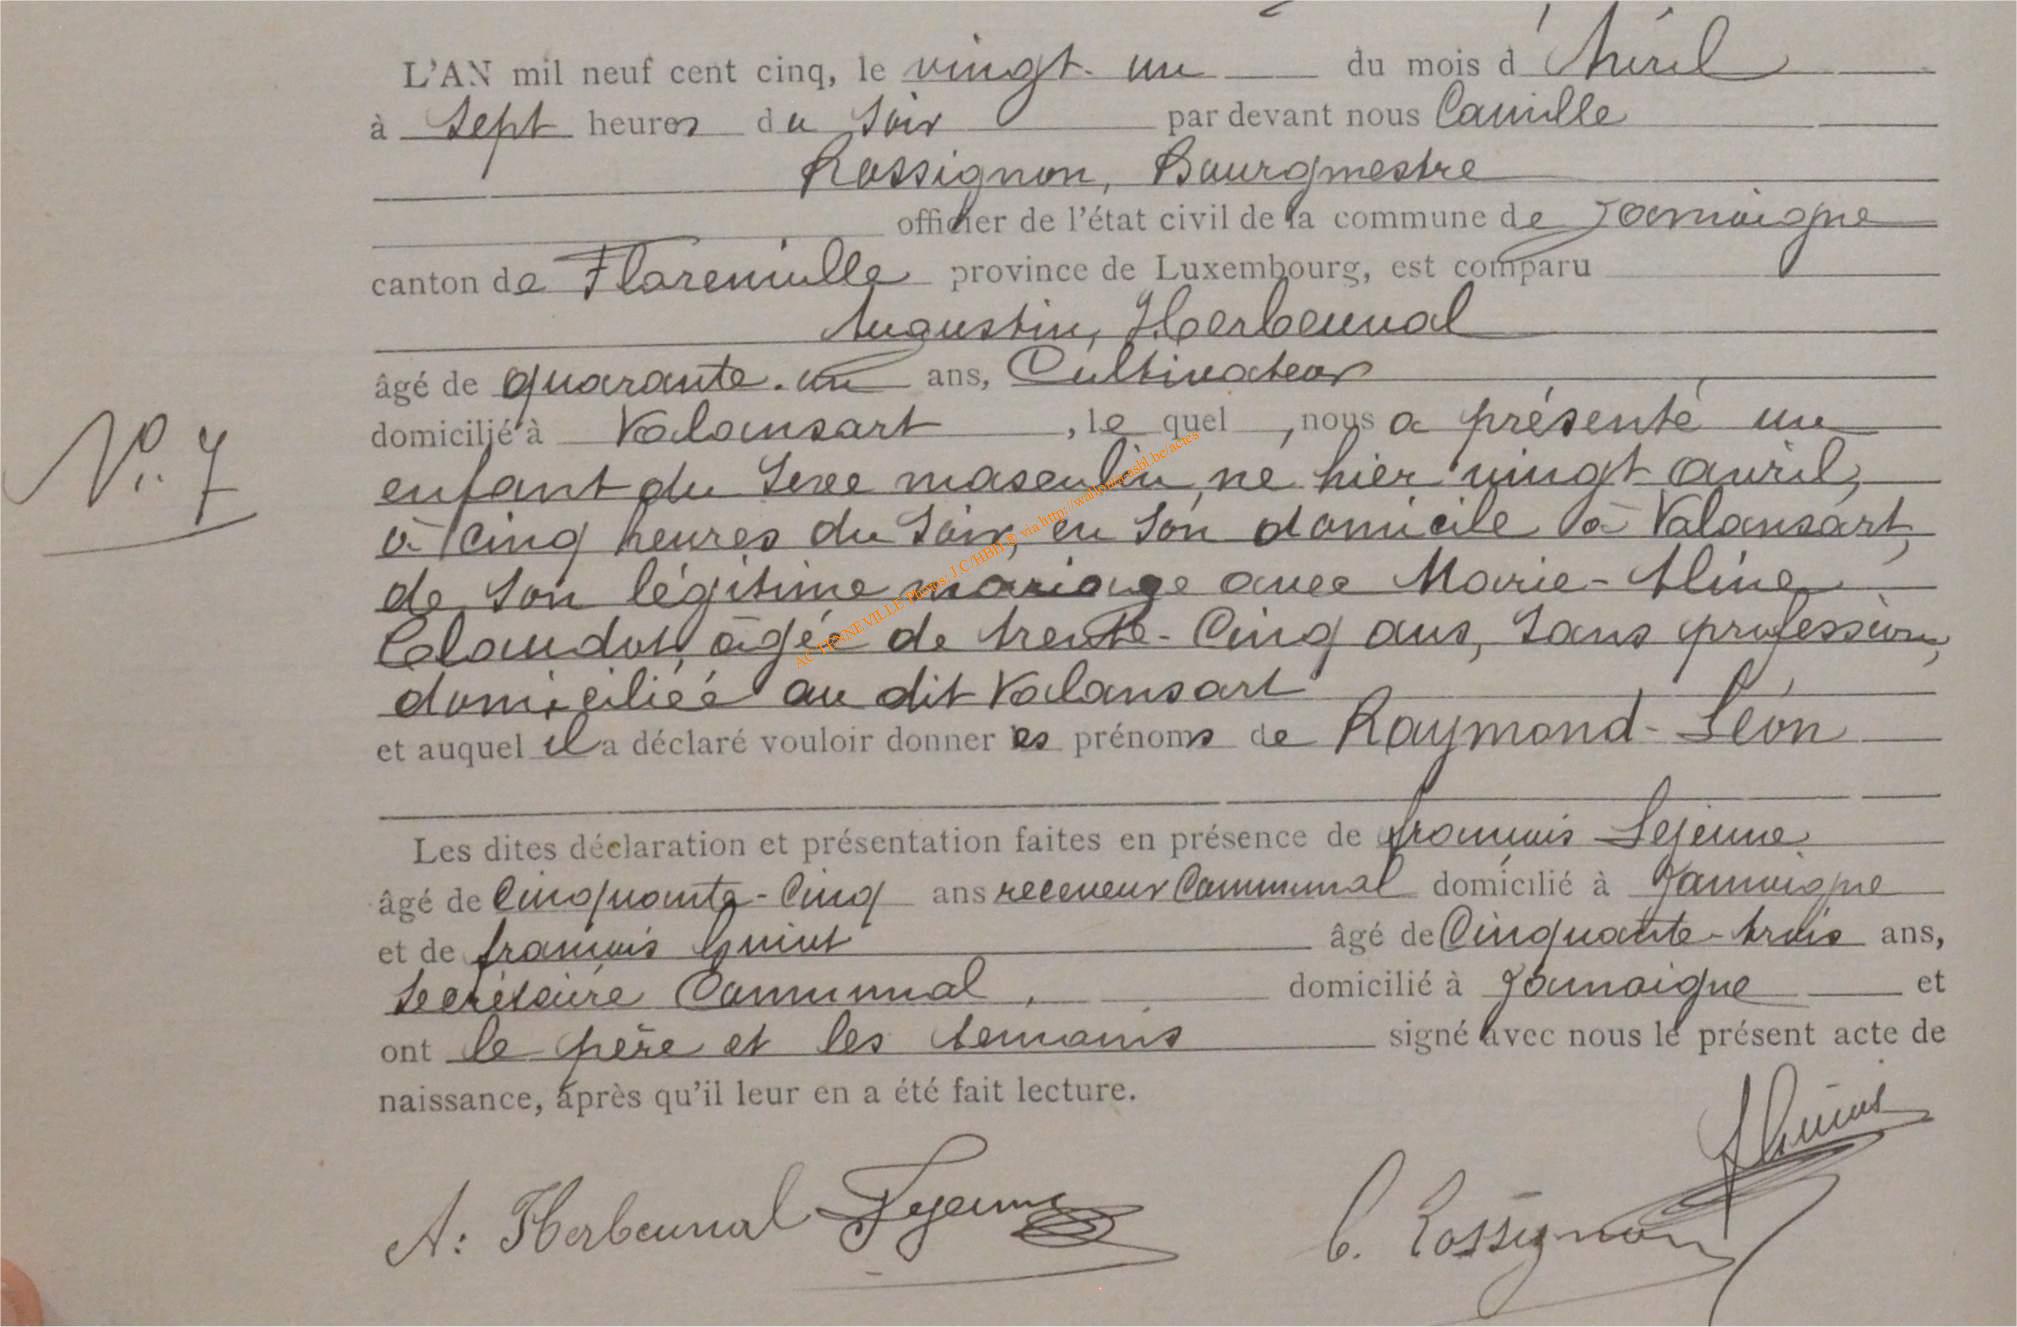 L'AN mil neuf cent cinq, le vingt-un du mois d'Avril
à sept heures du soir par devant nous Camille
Rossignon, Bourgmestre
officier de l'état civil de la commune de Jamoigne
canton de Florenville province de Luxembourg, est comparu
Augustin, Herbeuval
âgé de quarante-un ans, Cultivateur
domicilié à Valansart, le quel, nous a présenté un
N°. 7
enfant du sexe masculin, né hier vingt avril,
à cinq heures du soir, en son domicile à Valansart,
de son légitime mariage avec Marie-Aline
Claudot, âgée de trente-cinq ans, sans profession,
domiciliée au dit Valansart
et auquel il a déclaré vouloir donner les prénoms de Raymond-Léon
Les dites déclaration et présentation faites en présence de françois Lejeune
âgé de cinquante-cinq ans receveur Communal domicilié à Jamoigne
et de françois âgé de Cinquante-trois ans,
Secrétaire Communal, domicilié à Jamoigne et
ont le père et les témoins signé avec nous le présent acte de
naissance, après qu'il leur en a été fait lecture.
A: Herbeuval Lejeune C. Rossignon
AC TIENNEVILLE Photos: J.C/HBH © via http://wallphotosasbl.be/actes